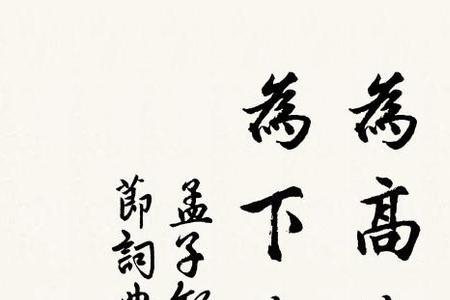 為高
為下
孟子
節詞